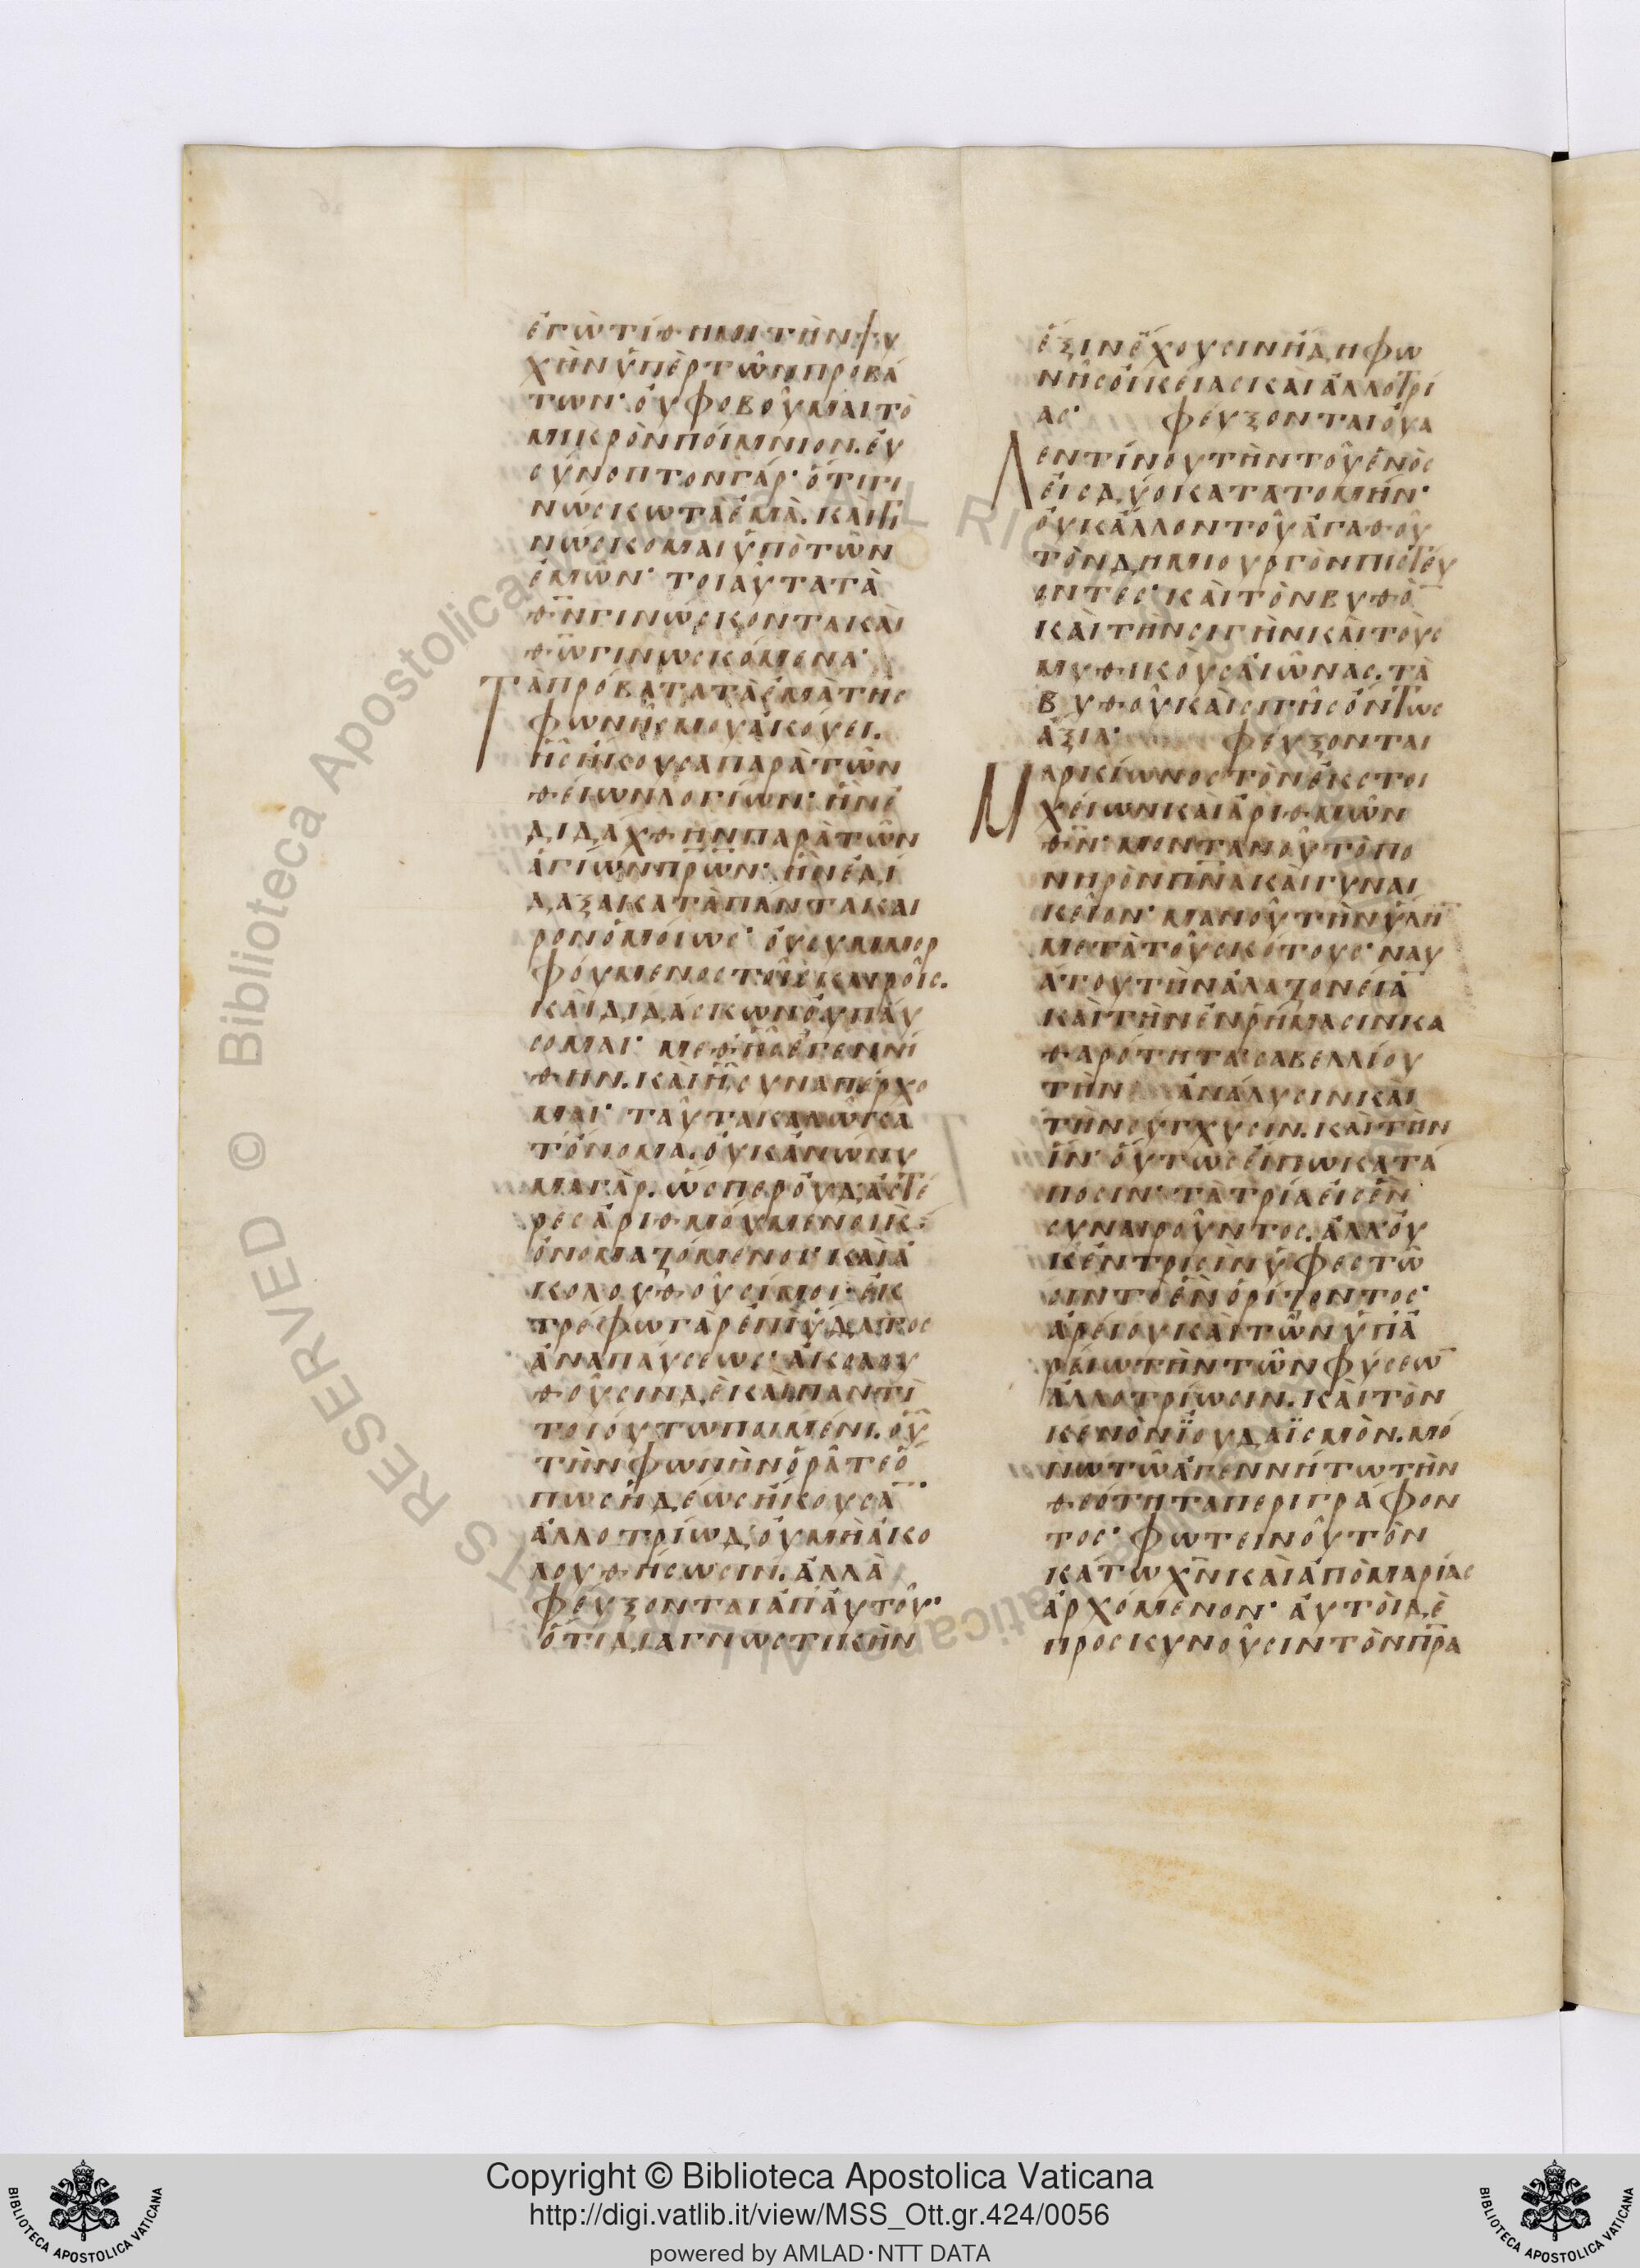 ἐγὼ τίθημι τὴν ψυ
χὴν ὑπὲρ τῶν προβά
των· οὐ φοβοῦμαι τὸ
μικρὸν ποίμνιον. εὐ
σύνοπτον γάρ· ὅτι γι
νώσκω τὰ ἐμὰ. καὶ γι
νώσκομαι ὑπὸ τῶν
ἐμῶν· τοιαῦτα τὰ
θ̅ν̅ γινώσκοντα καὶ
θ̅ω̅ γινωσκόμενα·
Τὰ πρόβατα τὰ ἐμὰ τῆς
φωνῆς μου ἀκούει.
ἧς ἤκουσα παρὰ τῶν
θείων λογίων· ἣν ἐ
διδάχθην παρὰ τῶν
ἁγίων π̅ρ̅ων· ἣν ἐδί
δαξα κατὰ πάντα και
ρον ὁμοίως· οὐ συμμορ
φούμενος τοῖς καιροῖς.
καὶ διδάσκων οὐ παύ
σομαι· μεθ ἧς ἐγεννή
θην. καὶ ᾗ συναπέρχο
μαι· ταῦτα καλῶ κα
τ ὄνομα. οὐκ ἀνώνυ
μα γὰρ. ὥσπερ οὐδ ἀστέ
ρες ἀριθμούμενοι κ̀
ὀνομαζόμενοι· καὶ ἀ
κολουθοῦσί μοι· ἐκ
τρέφω γὰρ ἐπὶ ὕδατος
ἀναπαύσεως· ἀκολου
θοῦσι δὲ καὶ παντὶ
τοιούτω ποιμένι. οὗ
τὴν φωνὴν ὁρᾶτε ὅ
πως ἡδέως ἤκουσα̅·
ἀλλοτρίω δ οὐ μὴ ἀκο
λουθήσωσιν. ἀλλὰ
φεύξονται ἀπ αὐτοῦ·
ὅτι διαγνωστικὴν
ἕξιν ἔχουσιν ἤδη φω
νῆς οἰκείας καὶ ἀλλοτρί
ας· φεύξονται οὐα
λεντίνου τὴν τοῦ ἑνὸς
εἰς δύο κατατομήν·
οὐκ ἄλλον τοῦ ἀγαθοῦ
τὸν δημιουργὸν πιστεύ
οντες· καὶ τὸν βυθὸ̅
καὶ τὴν σιγὴν καὶ τοὺς
μυθικοὺς αἰῶνας. τὰ
βυθοῦ καὶ σιγῆς ὄντως
ἄξια· φεύξονται
Μαρκίωνος τὸν ἐκ στοι
χείων καὶ ἀριθμῶν
θ̅ν̅· μοντανοῦ τὸ πο
νηρὸν π̅ν̅α καὶ γυναι
κεῖον· μανοῦ τὴν ὕλη̅
μετὰ τοῦ σκότους· ναυ
άτου τὴν ἀλαζονεία̅
καὶ τὴν ἐν ῥήμασιν κα
θαρότητα· σαβελλίου
τὴν ἀνάλυσιν καὶ
τὴν σύγχυσιν. καὶ τὴν
ἵν οὕτως εἴπω κατά
ποσιν· τὰ τρία εἰς ἓν
συναιροῦντος. ἀλλ οὐ
κ ἐν τρισὶν ὑφεστῶ
σιν τὸ ἓν ὁρίζοντος·
ἀρείου καὶ τῶν ὑπ ἀ
ρείω τὴν τῶν φύσεω̅
ἀλλοτρίωσιν. καὶ τὸν
κενὸν ϊουδαϊσμὸν. μό
νω τῶ ἀγεννήτω τὴν
θεότητα περιγράφον
τος· φωτεινοῦ τὸν
κάτω χ̅ν̅ καὶ ἀπὸ μαρίας
ἀρχόμενον· αὐτοὶ δὲ
προσκυνοῦσιν τὸν π̅ρ̅α
Copyright © Biblioteca Apostolica Vaticana
http://digi.vatlib.it/view/MSS_Ott.gr.424/0056
powered by AMLAD·NTT DATA
BIBLIOTECA APOSTOLICA VATICANA
BIBLIOTECA APOSTOLICA VATICANA
© Biblioteca Apostolica Vaticana ALL RIGHTS RESERVED